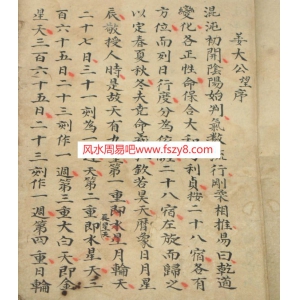 姜大公望序
混沌初開陰陽始判氣數流行剛柔相推易曰乾道
變化各正性命保合大和利貞按二十八宿各有
方位而刻日行度分為經二十八宿左旋而歸之
以定春夏秋冬夫堯命羲和欽若昊天曆象日月星
辰敬授人時是故天有九重第一重即水星月輪天
二十七日三十一刻為一週天第二重即水星天三
百六十五日二十三刻作一週第三重大白天即金
星天三百六十五日二十三刻作一週第四重日輪
风水周易吧